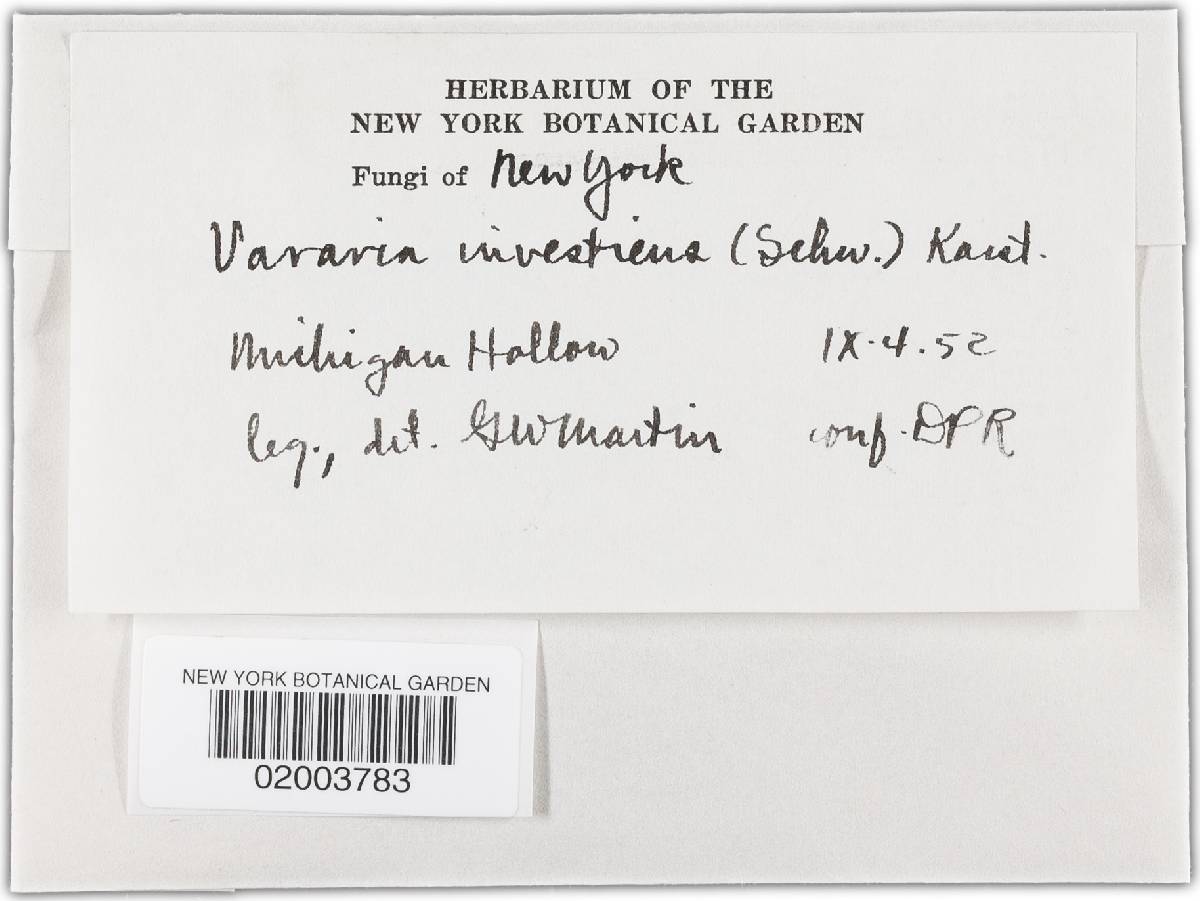 HERBARIUM OF THE
NEW YORK BOTANICAL GARDEN
Fungi of New York
Vararia investiens (Schw.) Karst.
Michigan Hollow IX.4.52
leg., det. GWMartin conf. DPR
NEW YORK BOTANICAL GARDEN
02003783